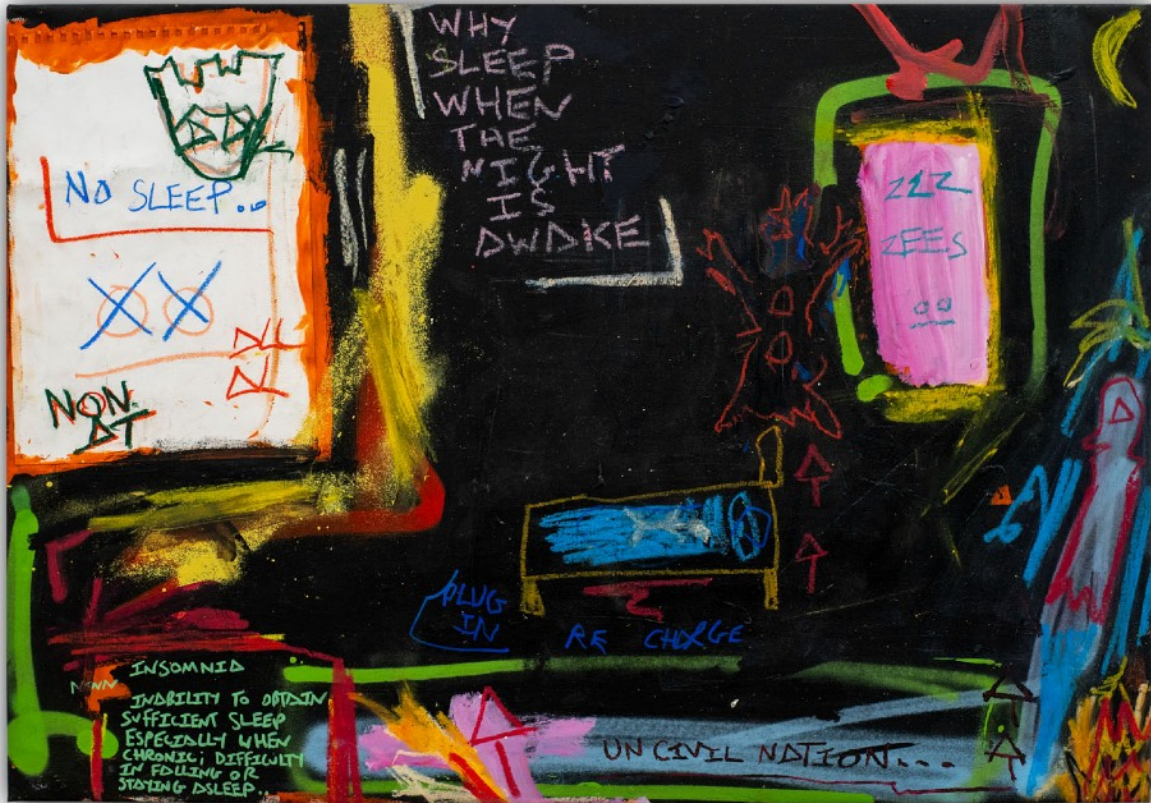 NO SLEEP..
NON.
WHY
SLEEP
WHEN
THE
NIGHT
IS
AWAKE
ZZZ
ZEES
PLUG
IN
RE CHARGE
INSOMNIA
NOUN
INABILITY TO OBTAIN
SUFFICIENT SLEEP
ESPECIALLY WHEN
CHRONIC; DIFFICULTY
IN FALLING OR
STAYING ASLEEP..
UN CIVIL NATION...